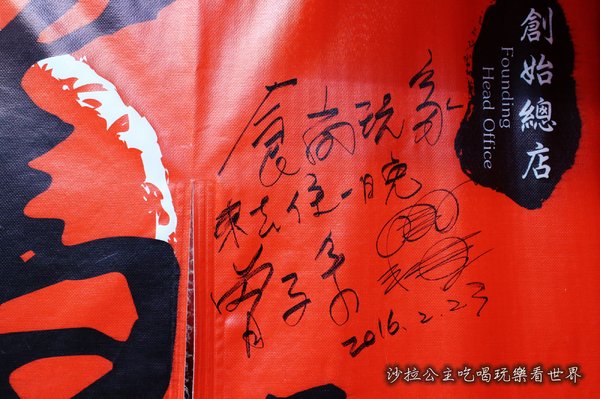 創始總店
Founding
Head Office
食尚玩家
來去住一晚
曾子余
2016.2.23
沙拉公主吃喝玩樂看世界